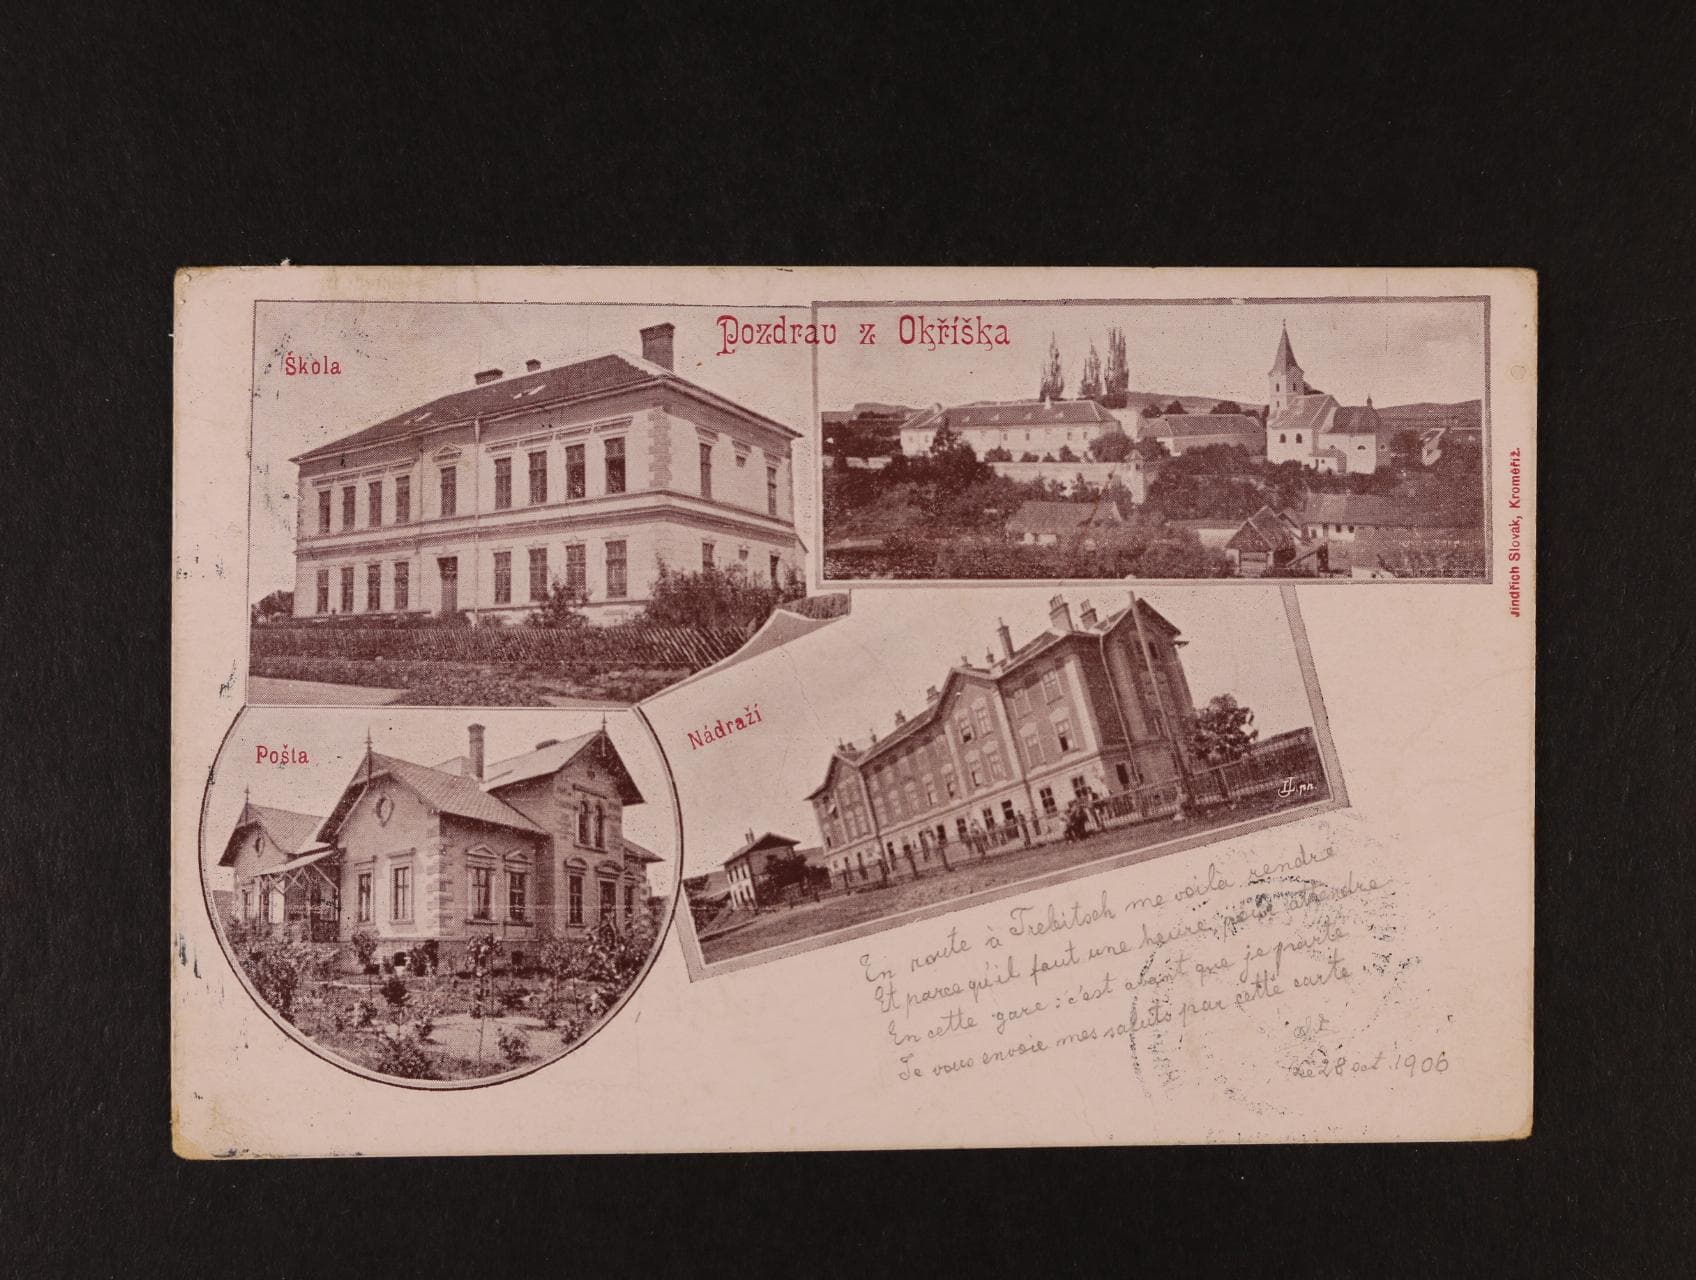 Pozdrav z Okříška
Škola
Jindřich Slovak, Kroměříž.
Nádraží
Pošta
En route à Trebitsch me voilà rendre
Et parce qu'il faut une heure, pour attendre
En cette gare : c'est avant que je parte
Je vous envoie mes saluts par cette carte
Le 28 oct. 1906